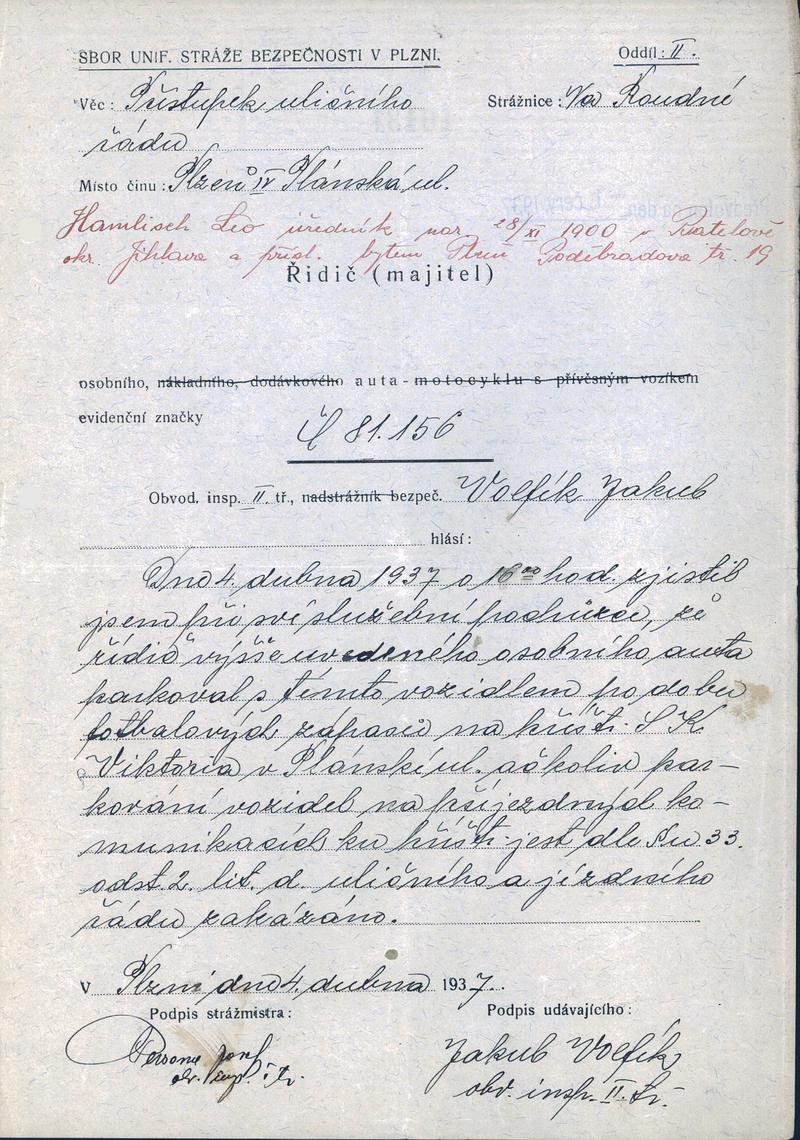 SBOR UNIF. STRÁŽE BEZPEČNOSTI V PLZNI.
Oddíl: II.
Věc: Přestupek uličního
Strážnice: Na Roudné
řádu
Místo činu: Plzeň IV Plánská ul.
Hamlisch Leo úředník nar. 28/XI 1900 v
okr. Jihlava a přísl. bytem Plzeň Poděbradova tř. 19
Řidič (majitel)
osobního, nákladního, dodávkového auta - motocyklu s přívěsným vozíkem
evidenční značky
Č 81.156
Obvod. insp. II. tř., nadstrážník bezpeč. Volfík Jakub
hlásí:
Dne 4. dubna 1937 o 16 00 hod. zjistil
jsem při své služební pochůzce, že
řidič výše uvedeného osobního auta
parkoval s tímto vozidlem po dobu
fotbalových zápasů na hřišti S K
Viktoria v Plánské ul. ačkoliv par-
kování vozidel na příjezdných ko-
munikacích ku hřišti jest dle §u 33.
odst. 2. lit. d. uličního a jízdního
řádu zakázáno.
V Plzni dne 4. dubna 1937.
Podpis strážmistra:
Podpis udávajícího:
Josef
Jakub Volfík
obv. insp. II. tř.